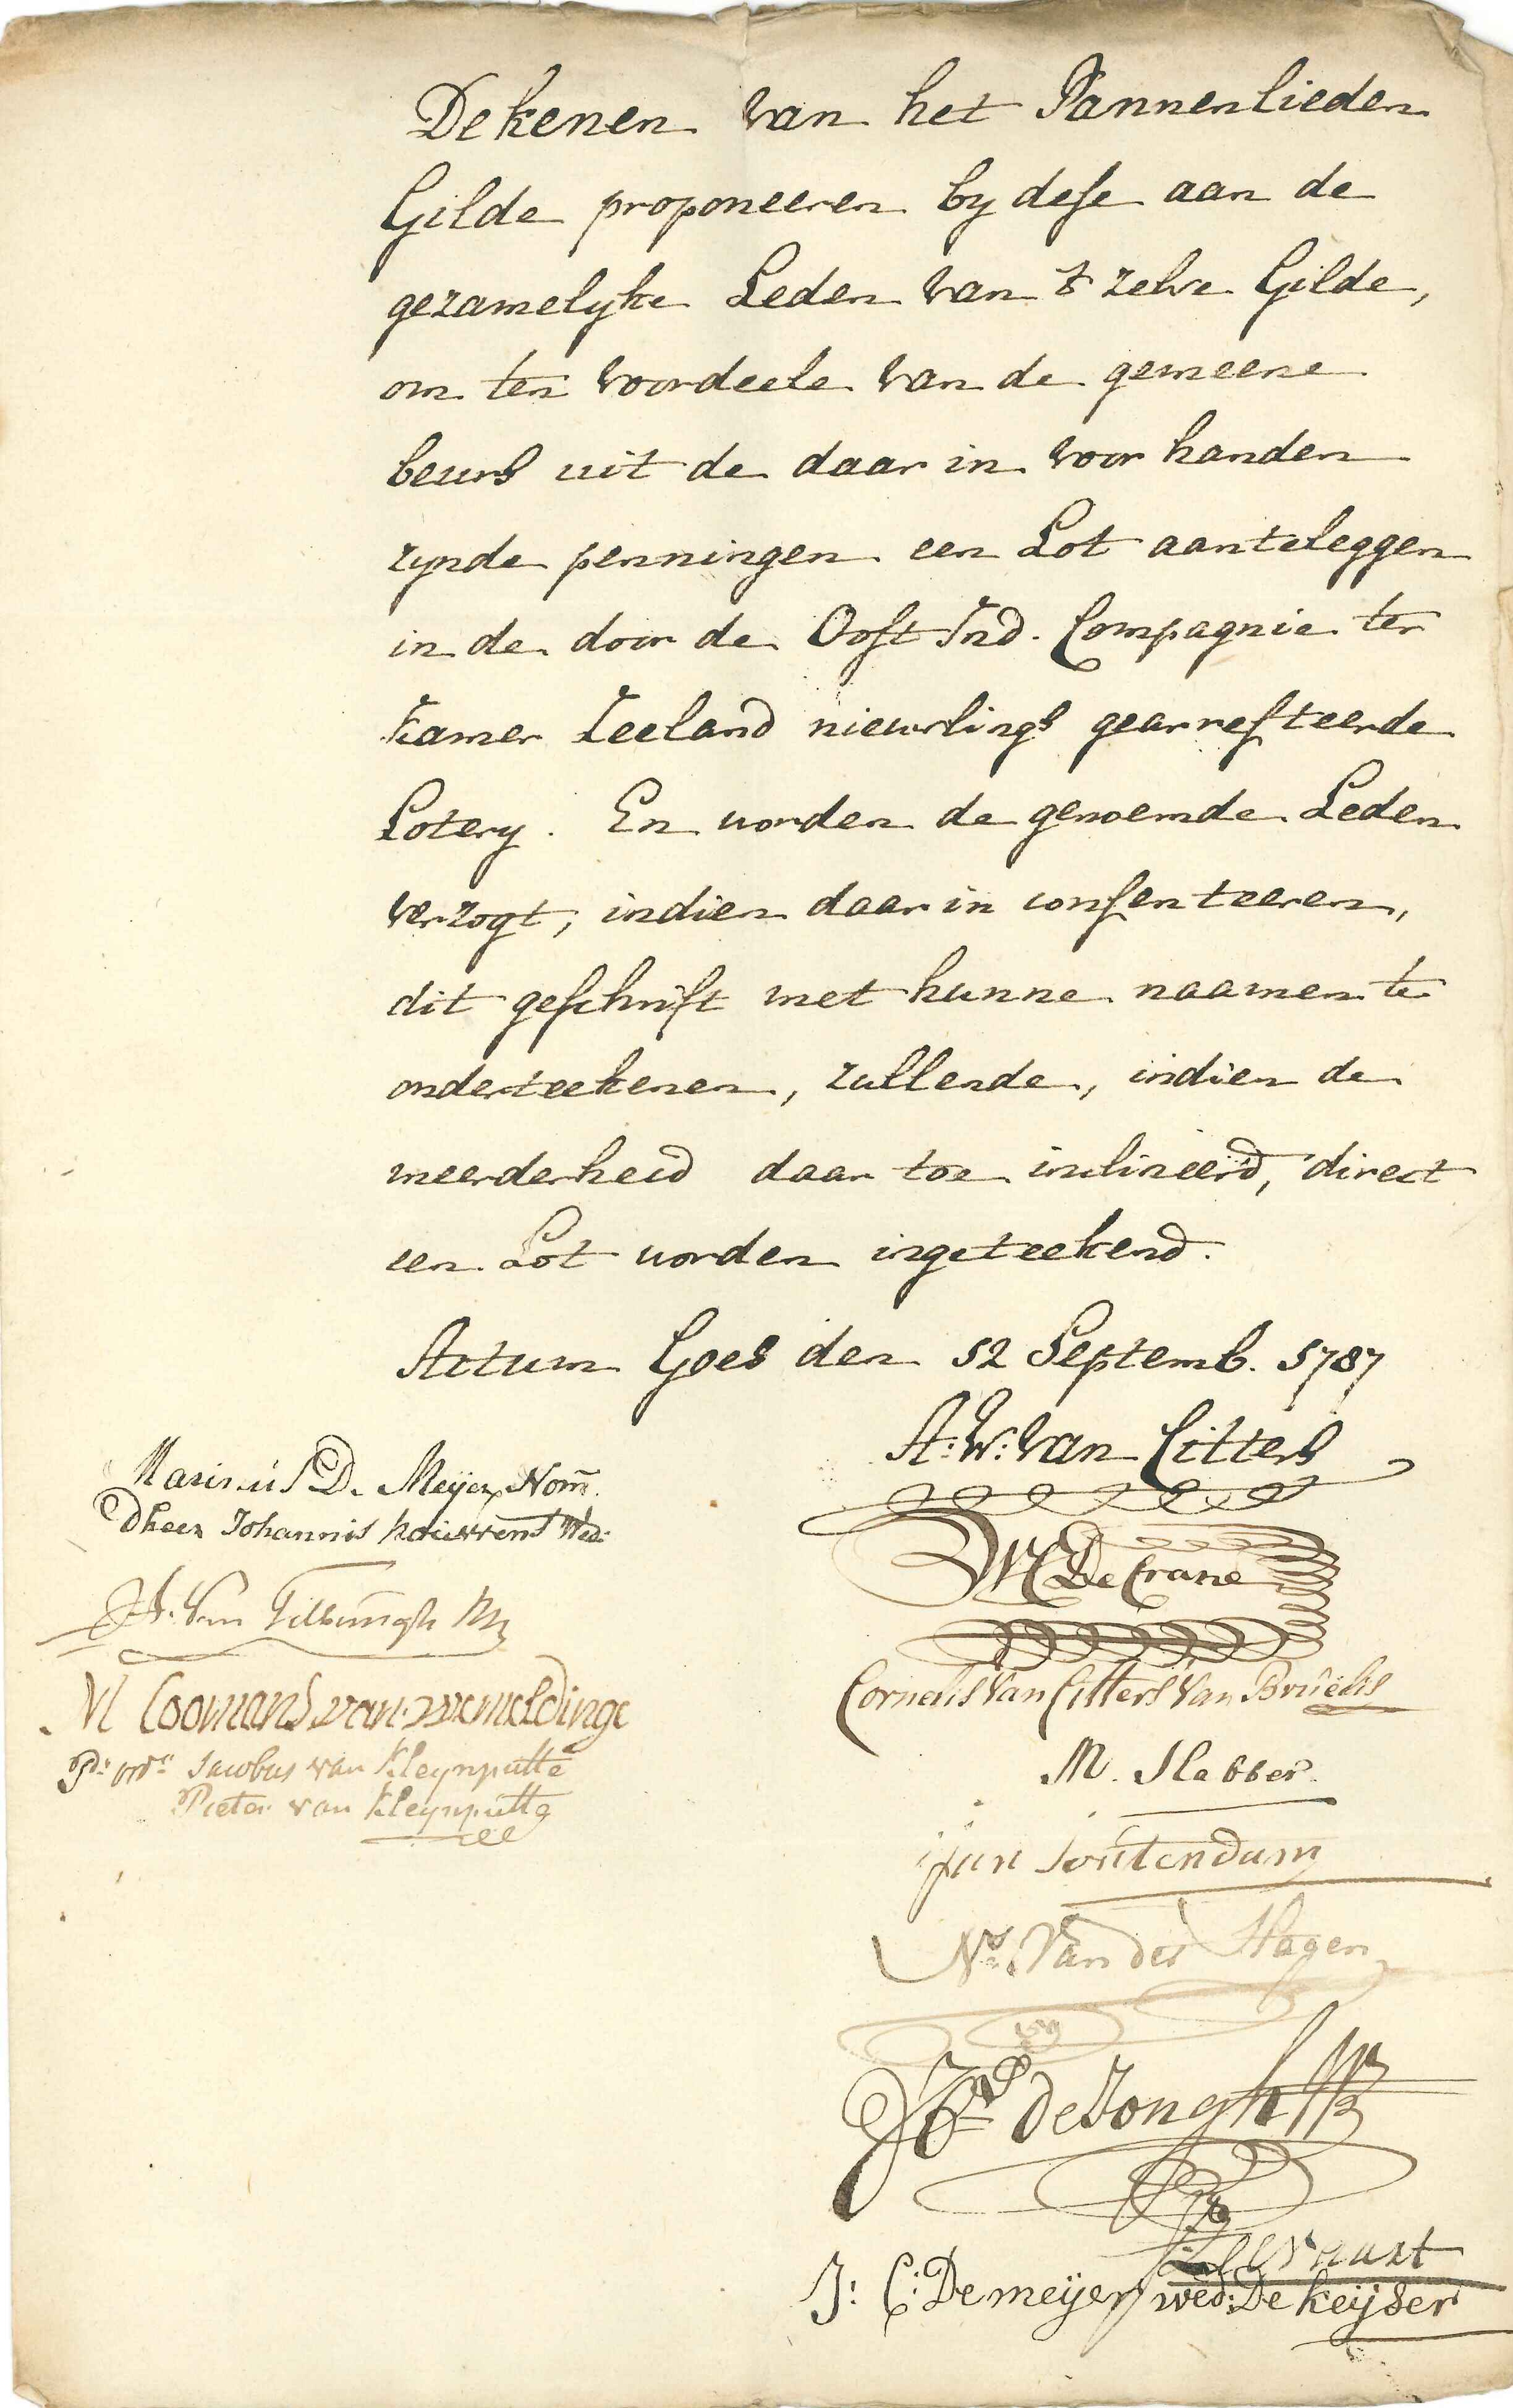 Dekenen van het Pannenlieden
Gilde proponeeren by dese aan de
gezamelyke Leden van 't zelve Gilde,
om ten voordeele van de gemeene
beurs uit de daar in voor handen
zynde penningen een Lot aanteleggen
in de door de Oost Ind. Compagnie ter
Kamer Zeeland nieuwlings gearresteerde
Lotery. En worden de genoemde Leden
verzogt, indien daar in consenteeren,
dit geschrift met hunne naamen te
onderteekenen, zullende, indien de
meerderheid daar toe inclineerd, direct
een Lot worden ingeteekend.
Actum Goes den 12 Septemb. 1787
A: W: van Citters
M De Crane
Cornelis Van Citters Van Bruëlis
M. Slabber
Jan Soutendam
Ns. Van der Hagen
de Jongh
Zeevaart
J: C: De meyer wed: De Keijser
Marinus D. Meyer Nom.
Dheer Johannis Wed:
A. Van Tilburgh
M Coomans van wemeldinge
Jacobus van Kleynputte
Pieter van Kleynputte